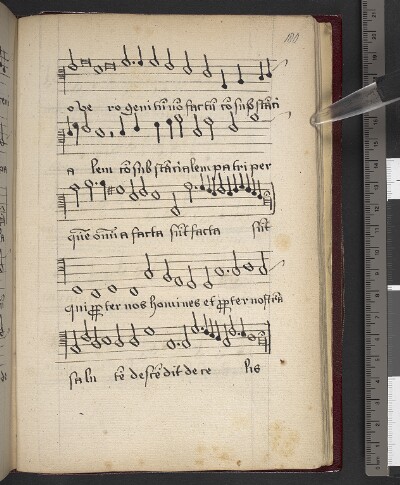 o ve ro genitū nō factū cō subſtāci
a lem cō subſtācialem patri per
quē om̄ia facta sūt facta sūt
qui ꝓpter nos homines et ꝓpter noſtrā
salu tē deſcēdit de ce lis